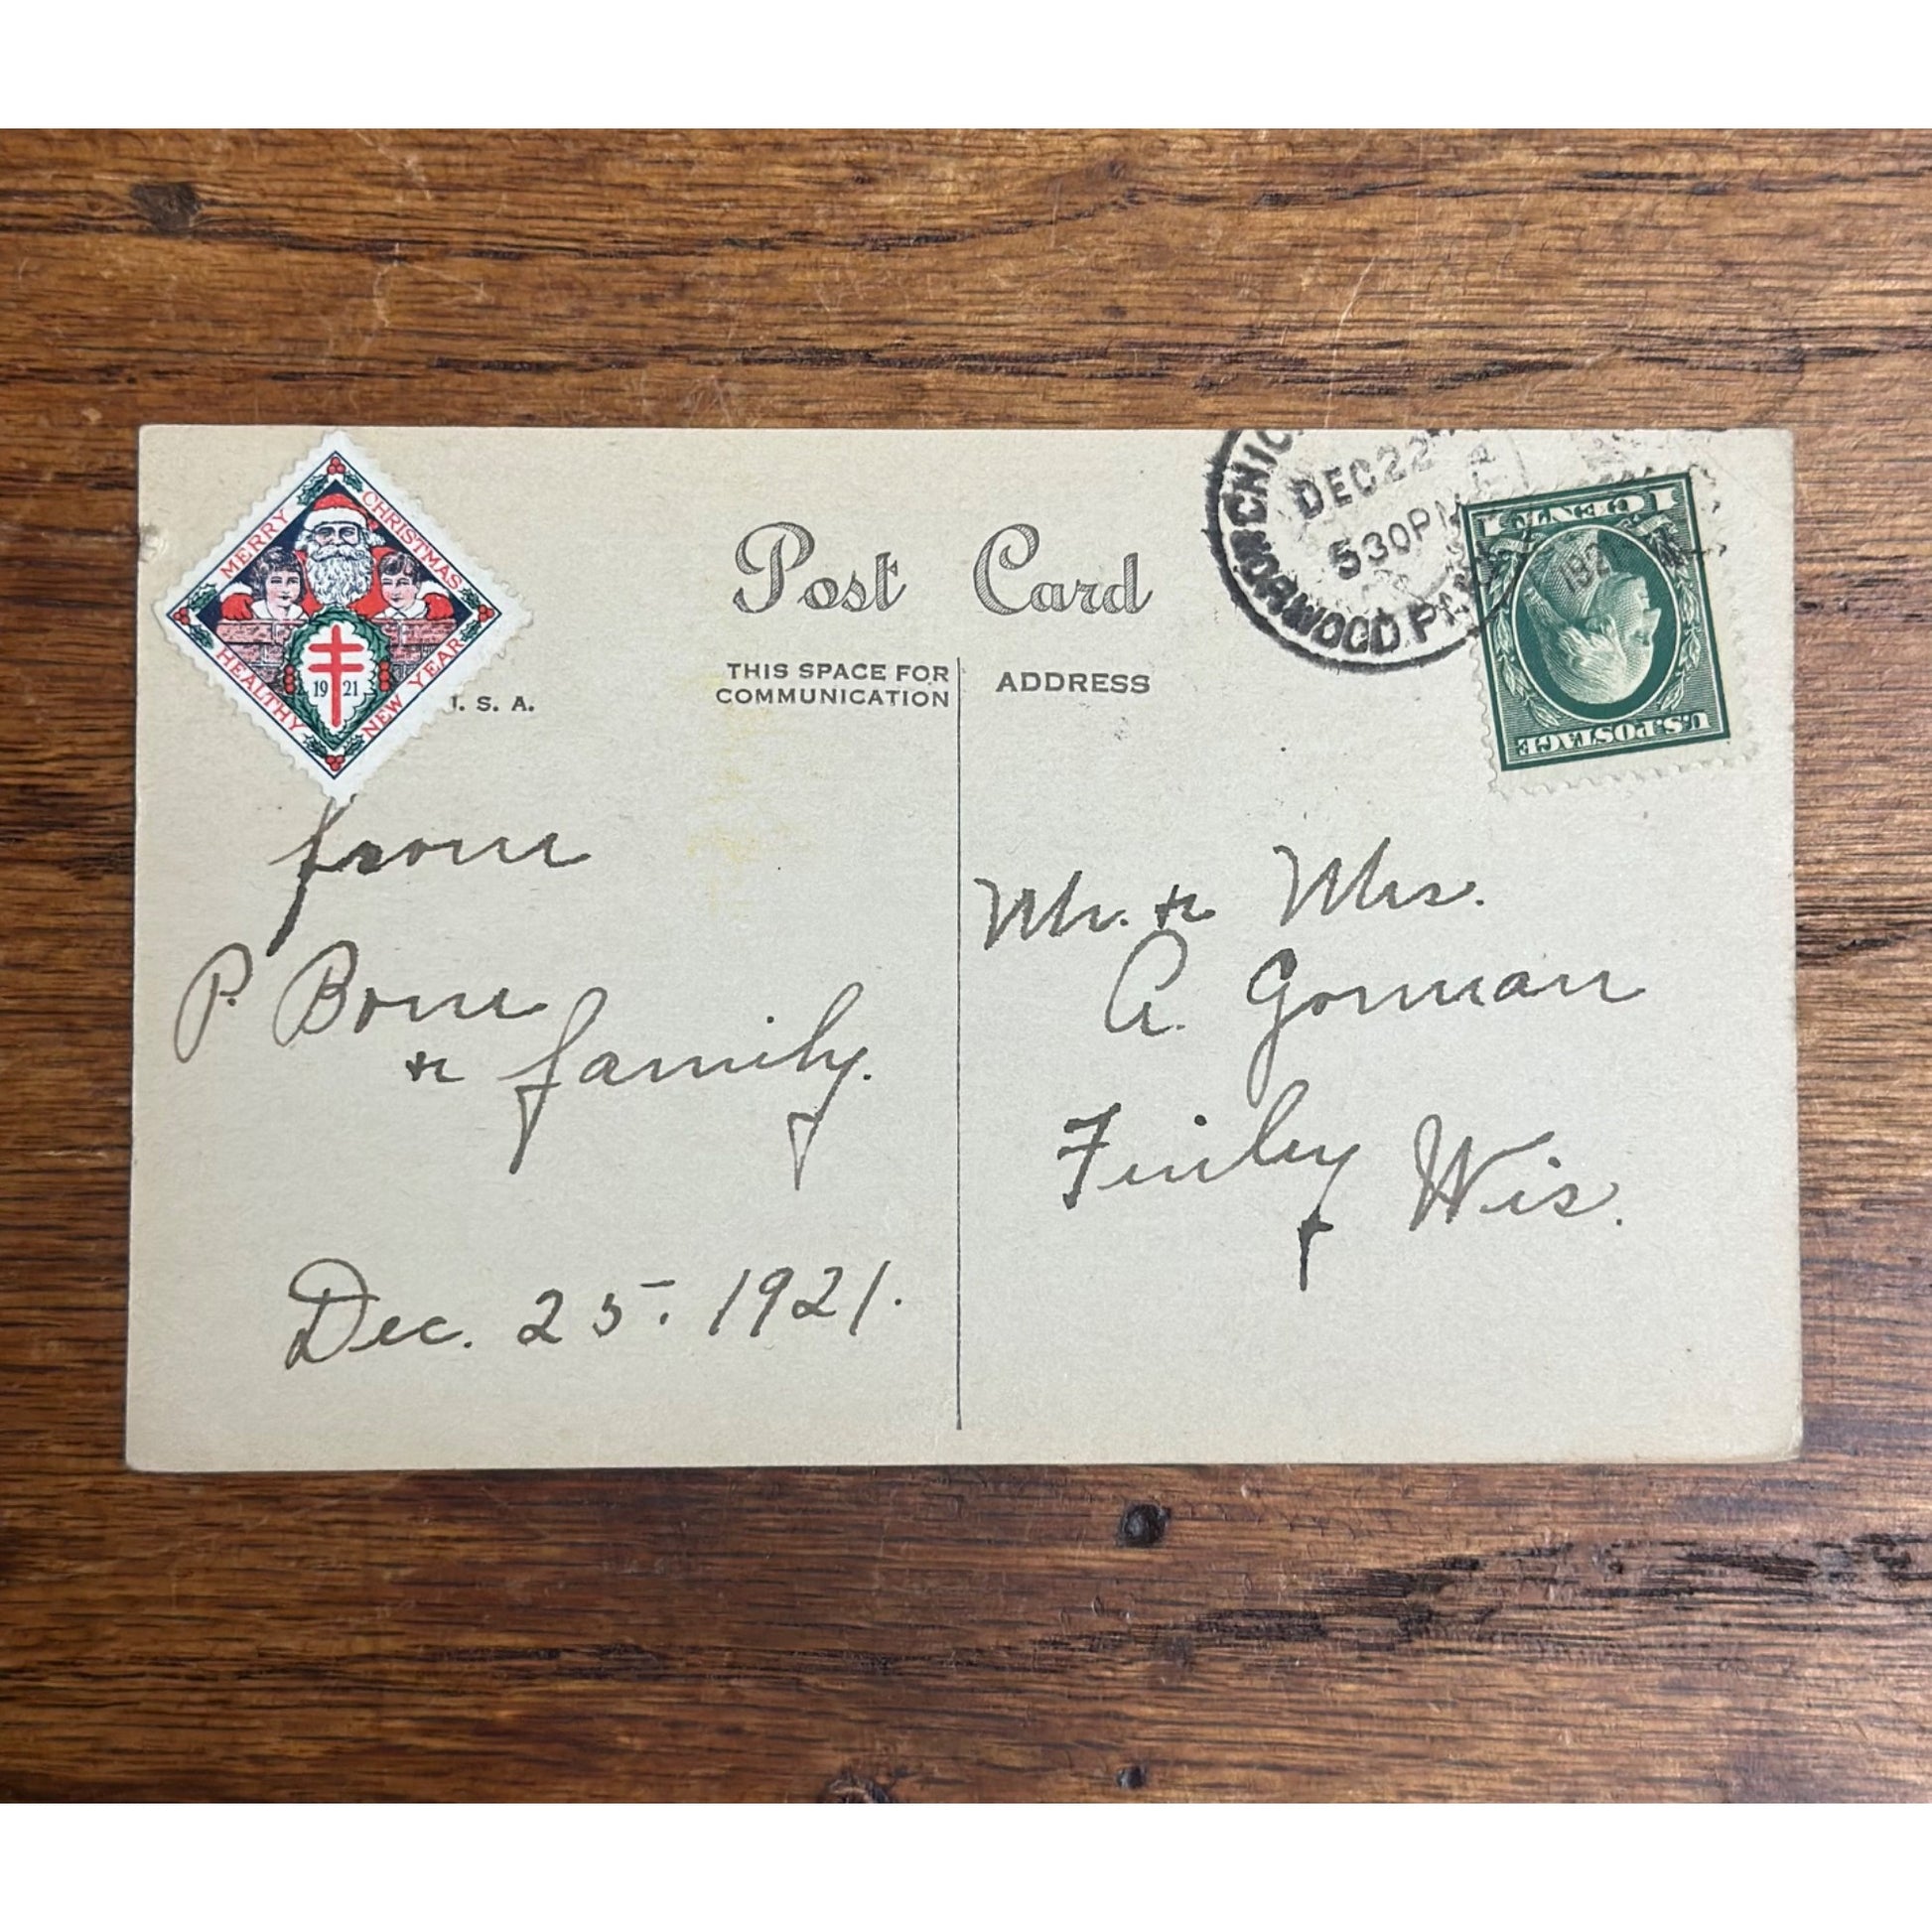 MERRY CHRISTMAS
HEALTHY NEW YEAR
19 21
. S. A.
Post Card
THIS SPACE FOR
COMMUNICATION
ADDRESS
DEC 22
5 30 PM
NORWOOD PARK
1 CENT 1
U.S. POSTAGE
from
P. Born
& family.
Dec. 25. 1921.
Mr. & Mrs.
A. Gorman
Finley Wis.